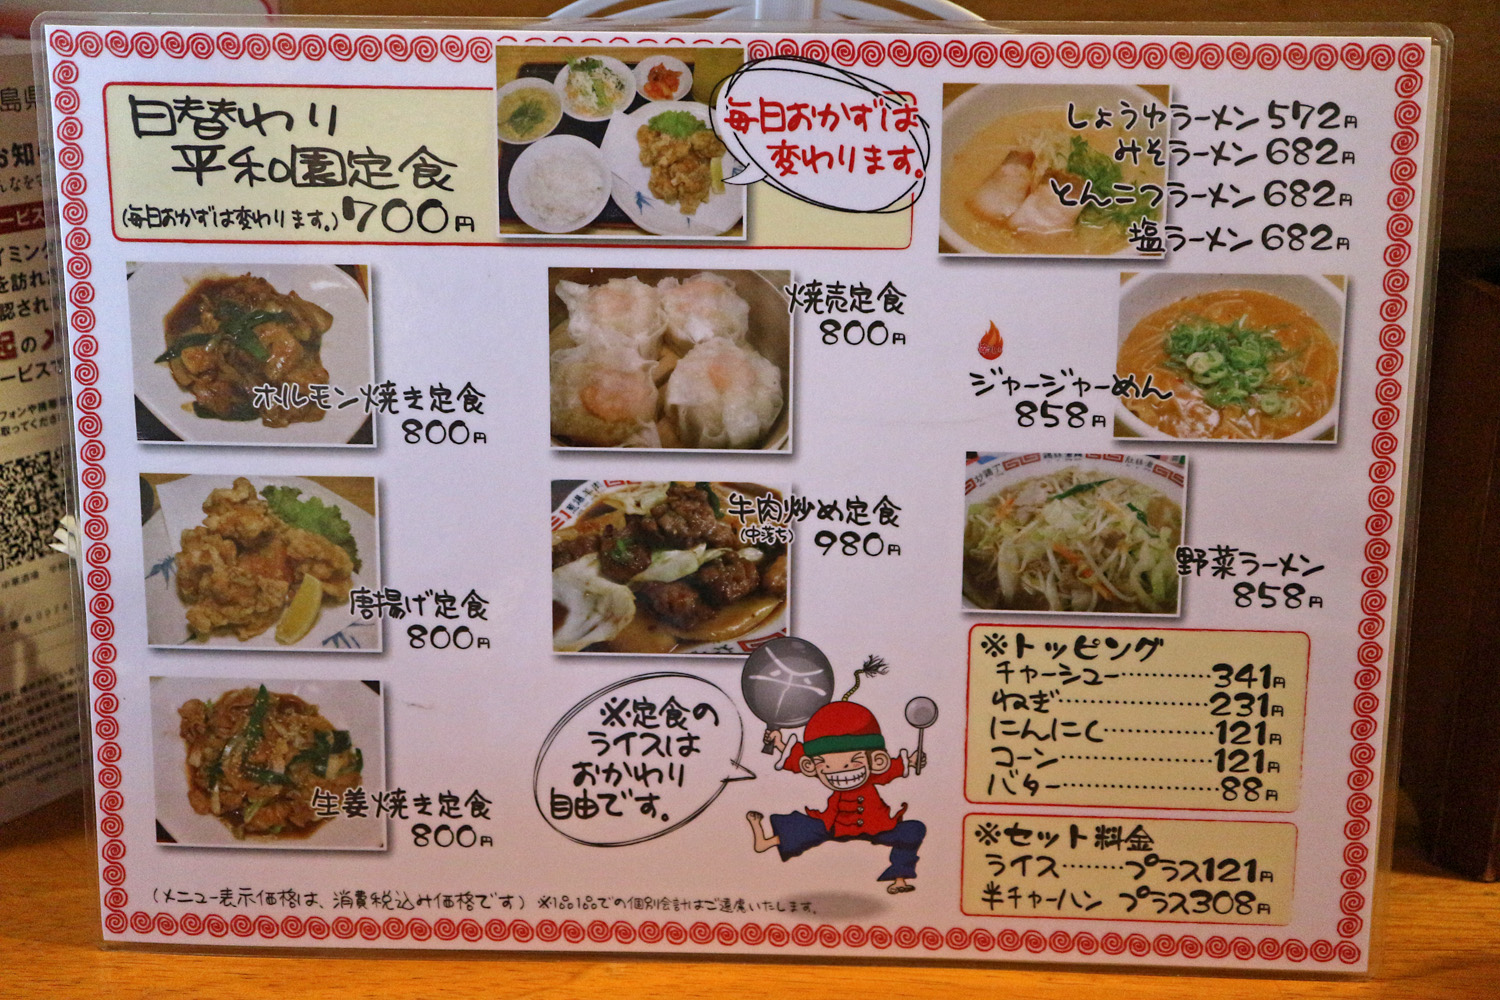 日替わり
平和園定食
(毎日おかずは変わります。)700円
毎日おかずは
変わります。
ホルモン焼き定食
800円
唐揚げ定食
800円
生姜焼き定食
800円
焼売定食
800円
牛肉炒め定食
(中落ち) 980円
※定食の
ライスは
おかわり
自由です。
しょうゆラーメン 572円
みそラーメン 682円
とんこつラーメン 682円
塩ラーメン 682円
ジャージャーめん
858円
野菜ラーメン
858円
※トッピング
チャーシュー…………341円
ねぎ………………231円
にんにく……………121円
コーン………………121円
バター………………88円
※セット料金
ライス………プラス121円
半チャーハン プラス308円
(メニュー表示価格は、消費税込み価格です)
での個別会計はご遠慮いたします。